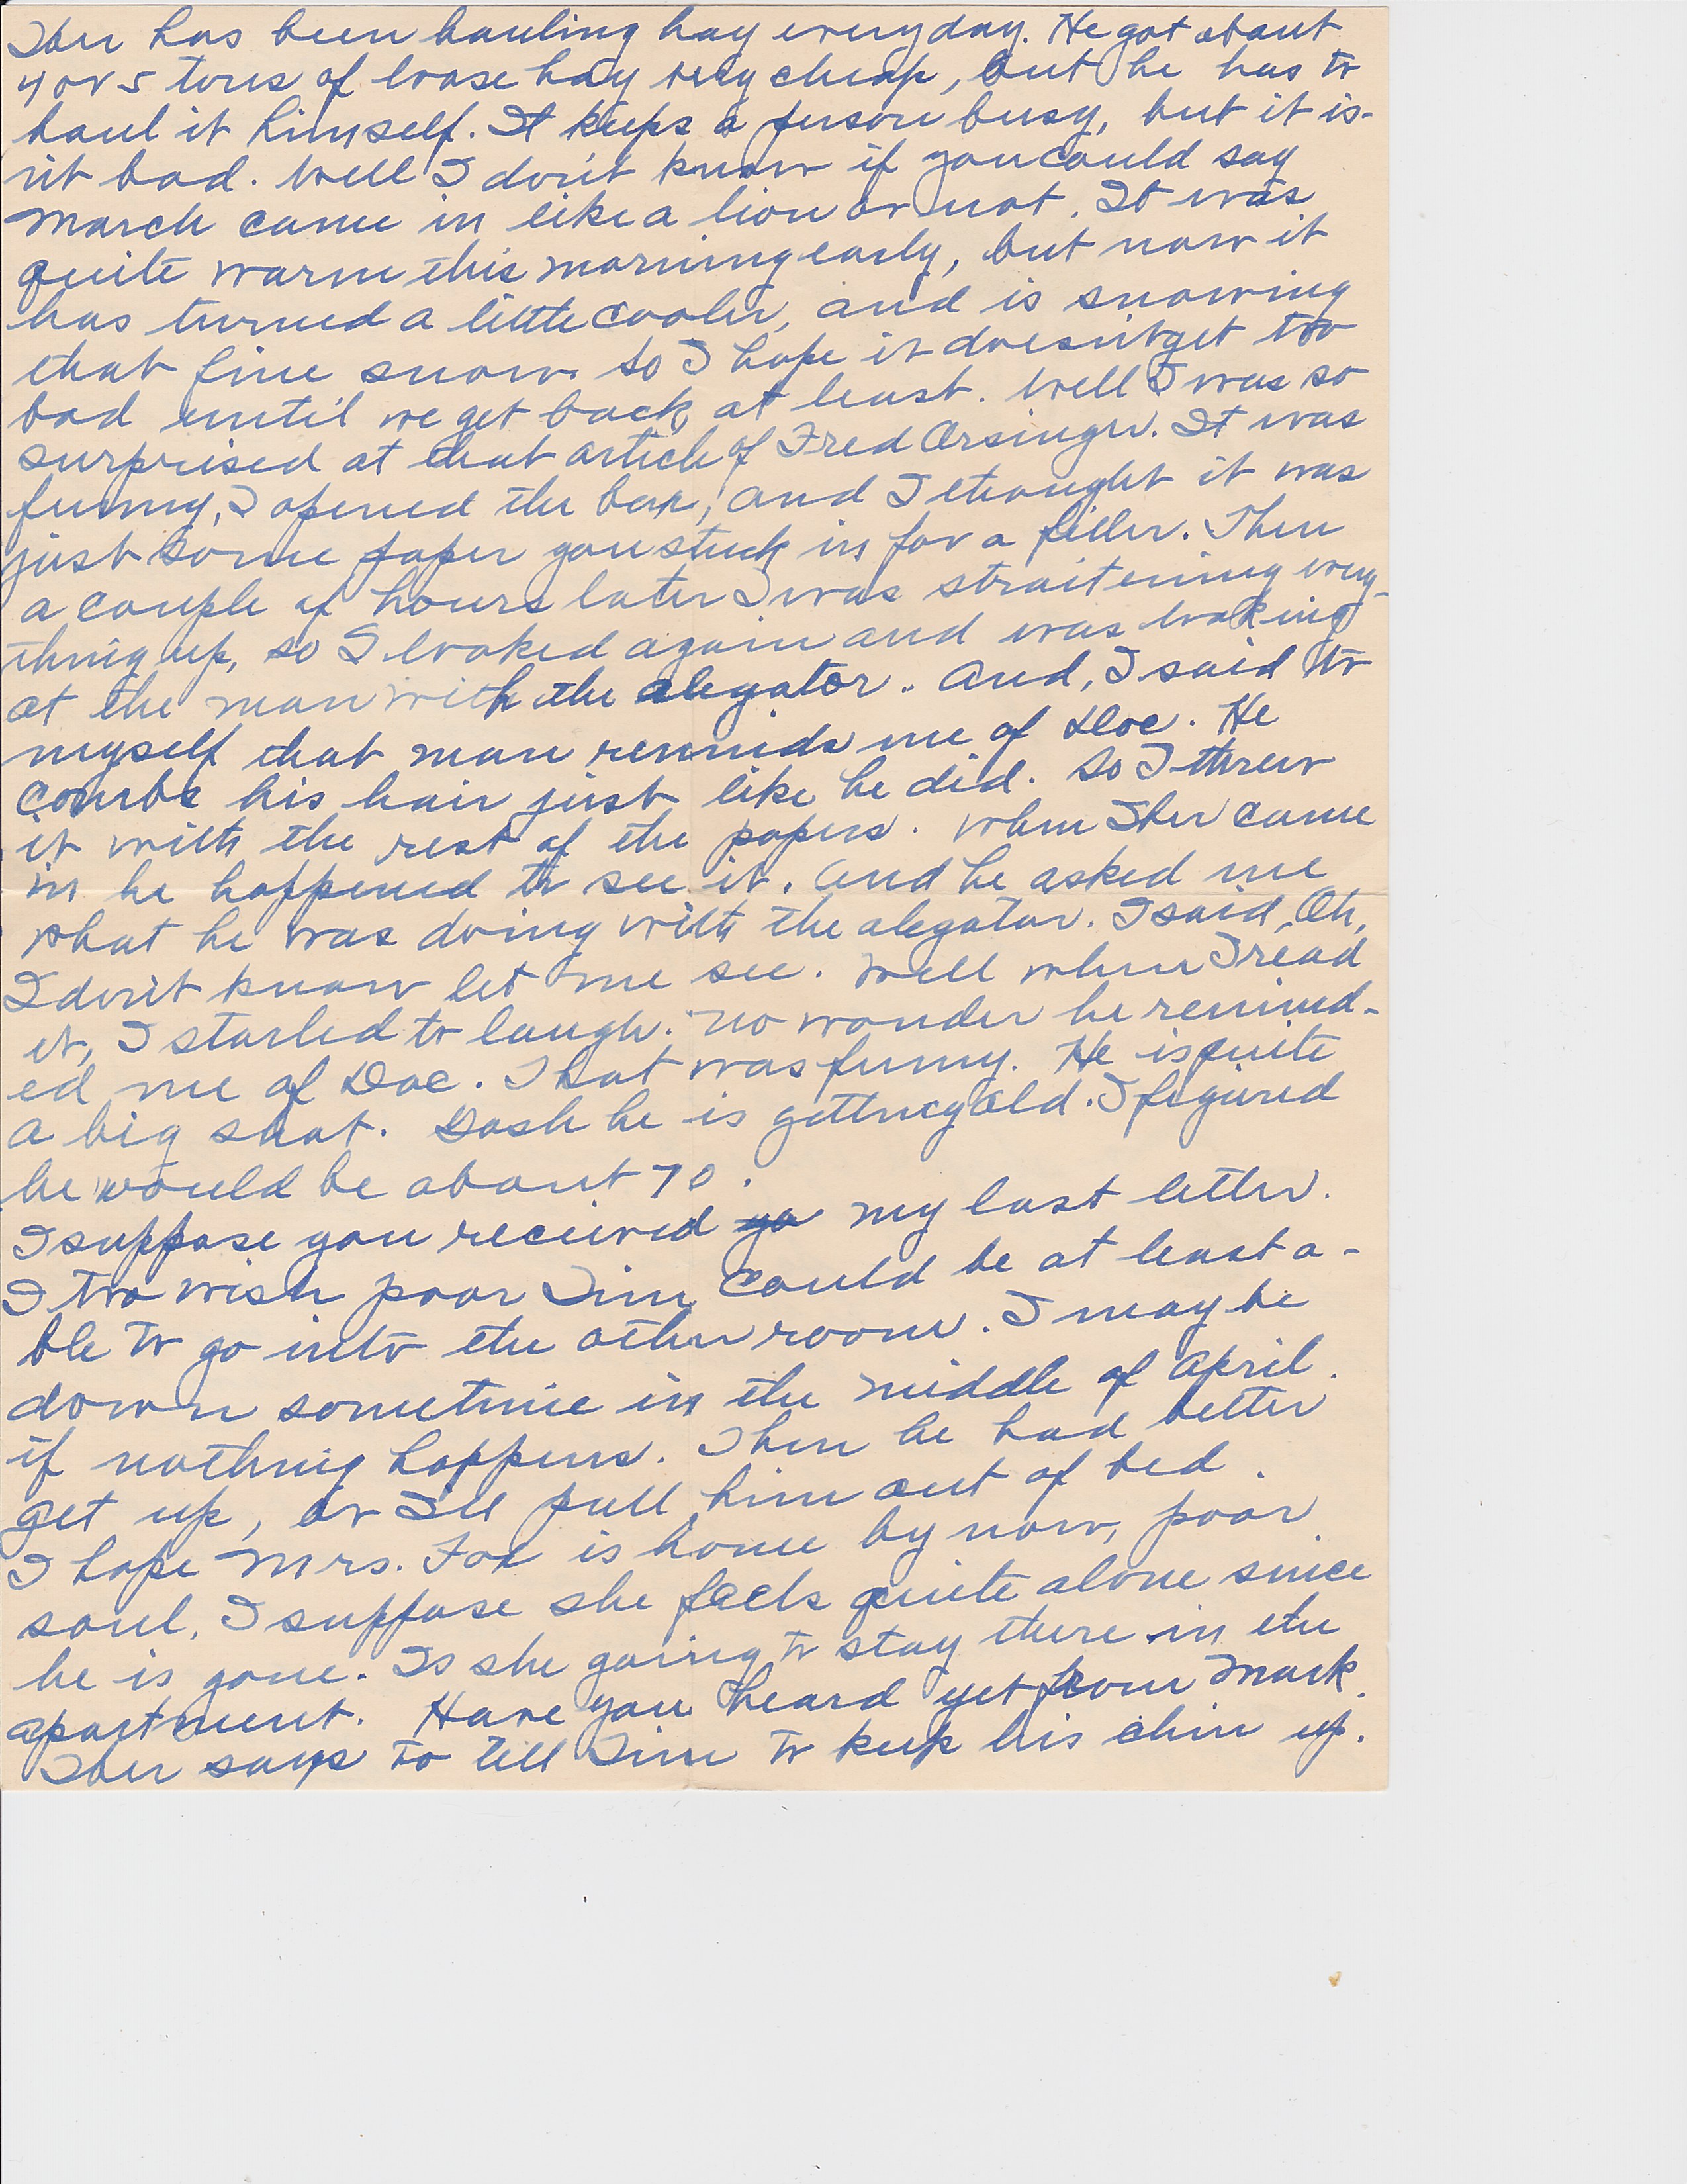 Iber has been hauling hay everyday. He got about
4 or 5 tons of loose hay very cheap, but he has to
haul it himself. It keeps a person busy, but it is-
n't bad. Well I don't know if you could say
March came in like a lion or not. It was
quite warm this morning early, but now it
has turned a little cooler, and is snowing
that fine snow. So I hope it doesn't get too
bad until we get back at least. Well I was so
surprised at that article of Fred Orsinger. It was
funny, I opened the box, and I thought it was
just some paper you stuck in for a filler. Then
a couple of hours later I was straitening every-
thing up, so I looked again and was looking
at the man with the alegator. And, I said to
myself that man reminds me of Doc. He
combs his hair just like he did. So I threw
it with the rest of the papers. When Iber came
in he happened to see it. And he asked me
what he was doing with the alegator. I said, Oh,
I don't know let me see. Well when I read
it, I started to laugh. No wonder he remind-
ed me of Doc. That was funny. He is quite
a big shot. Gosh he is getting old. I figured
he would be about 70.
I suppose you recieved my last letter.
I too wish poor Jim could be at least a-
ble to go into the other room. I may be
down sometime in the middle of April.
if nothing happens. Then he had better
get up, or I'll pull him out of bed.
I hope Mrs. Fox is home by now, poor
soul, I suppose she feels quite alone since
he is gone. Is she going to stay there in the
apartment. Have you heard yet from Mark.
Iber says to tell Jim to keep his chin up.